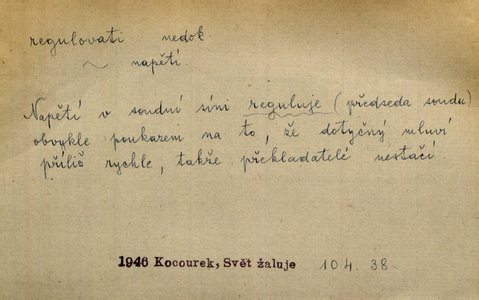 regulovati nedok.
~ napětí.
Napětí v soudní síni reguluje (předseda soudu)
obvykle poukazem na to, že dotyčný mluví
příliš rychle, takže překladatelé nestačí.
1946 Kocourek, Svět žaluje 104. 38.